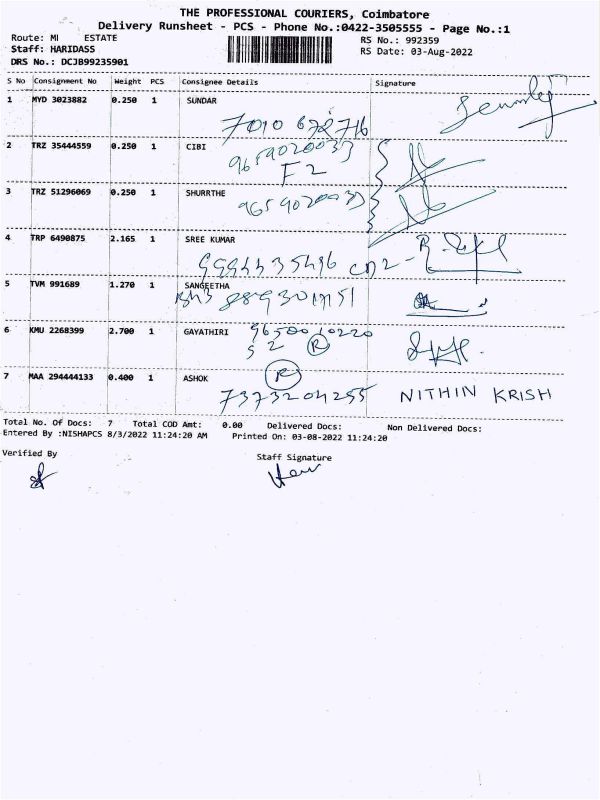 THE PROFESSIONAL COURIERS, Coimbatore
Delivery Runsheet - PCS - Phone No.:0422-3505555 - Page No.:1
Route: MI ESTATE RS No.: 992359
Staff: HARIDASS RS Date: 03-Aug-2022
DRS No.: DCJB99235901
S No Consignment No Weight PCS Consignee Details Signature
1 MYD 3023882 0.250 1 SUNDAR
7010 672716
2 TRZ 35444559 0.250 1 CIBI
9659020033
F2
3 TRZ 51296069 0.250 1 SHURRTHE
9659020033
4 TRP 6490875 2.165 1 SREE KUMAR
5 TVM 991689 1.270 1 SANGEETHA
6 KMU 2268399 2.700 1 GAYATHIRI
S2 R
7 MAA 294444133 0.400 1 ASHOK R
7373204255 NITHIN KRISH
Total No. Of Docs: 7 Total COD Amt: 0.00 Delivered Docs: Non Delivered Docs:
Entered By :NISHAPCS 8/3/2022 11:24:20 AM Printed On: 03-08-2022 11:24:20
Verified By Staff Signature